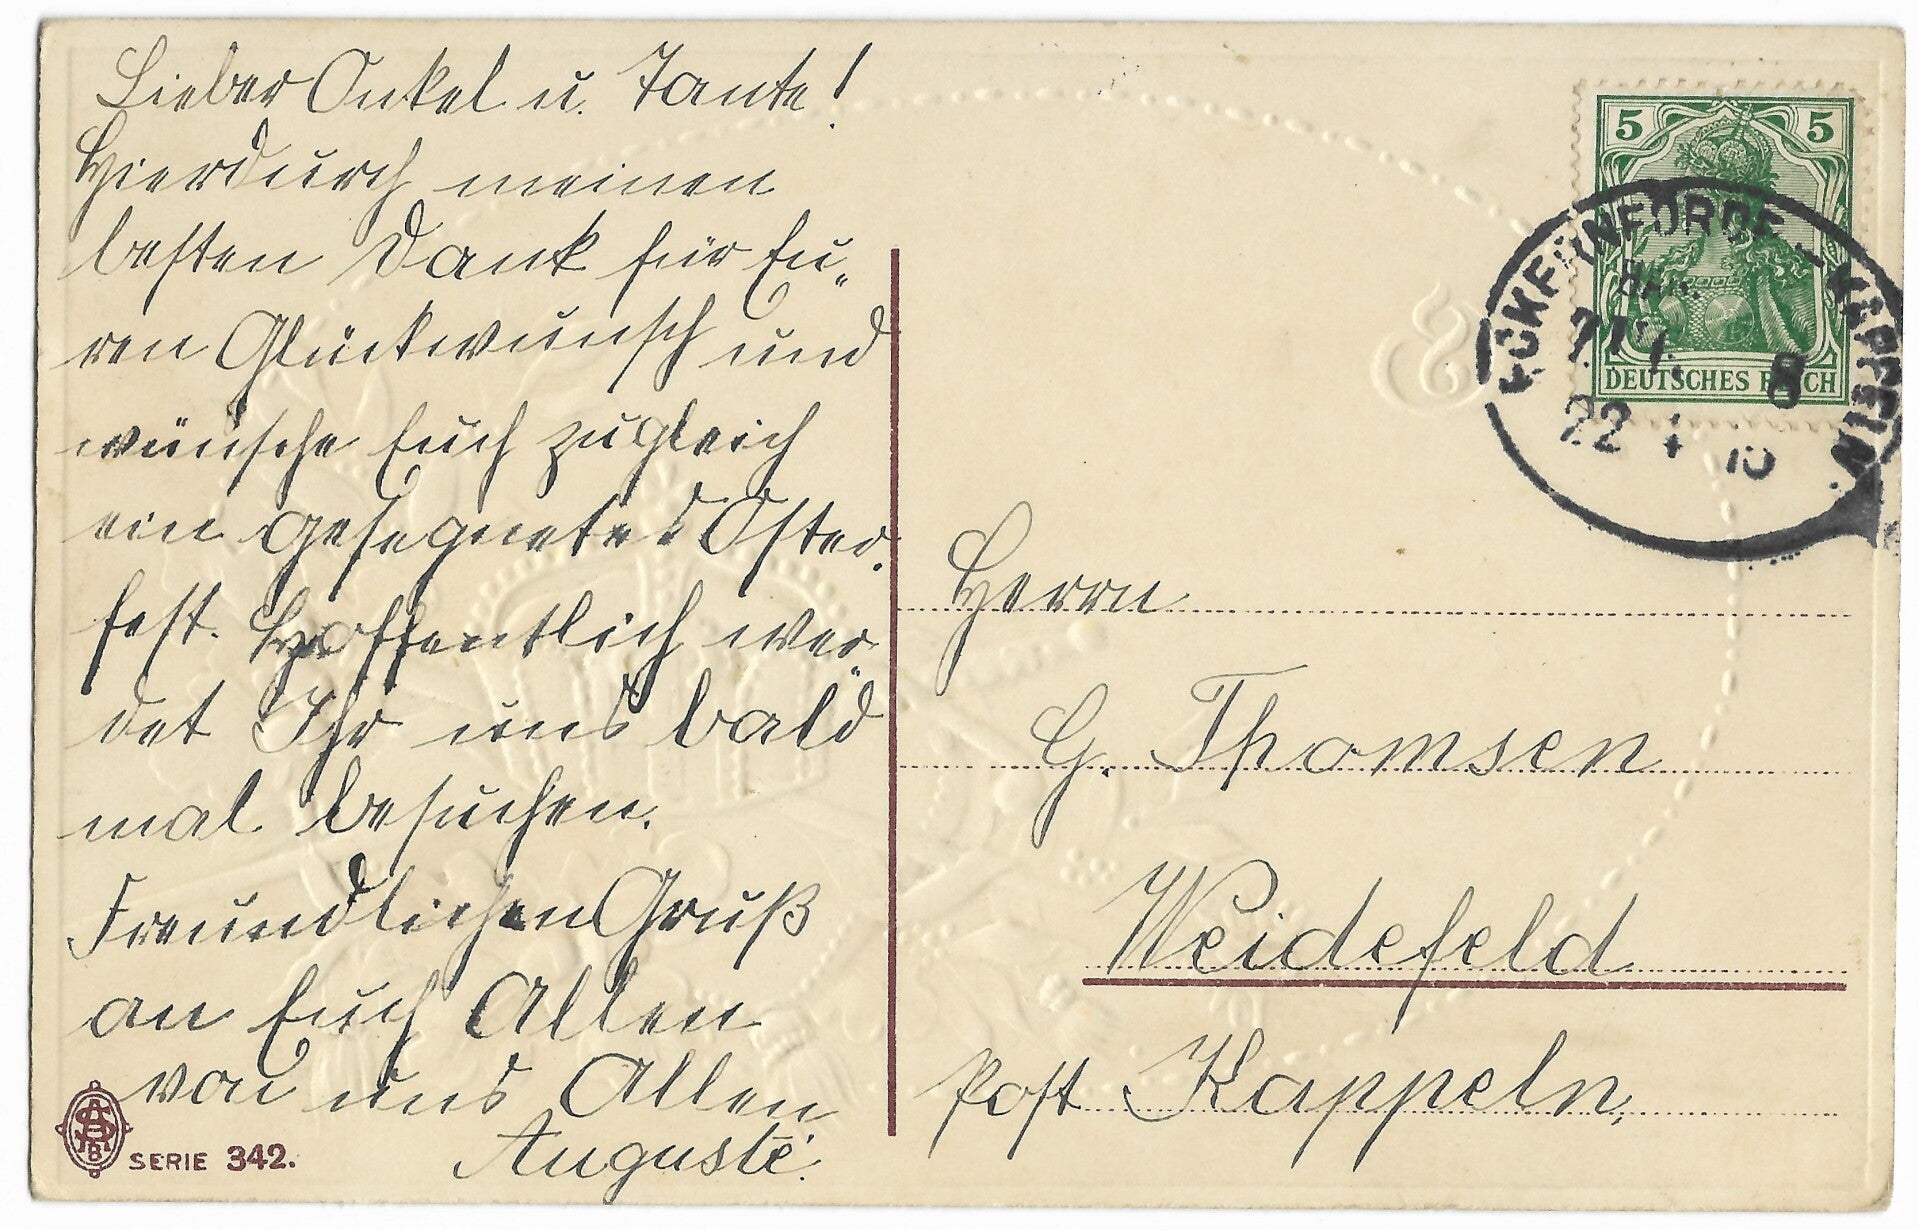 Lieber Onkel u. Tante!
Hierdurch meinen
besten Dank für Eu„
ren Glückwunsch und
wünsche Euch zugleich
ein gesegnetes Oster„
fest. Hoffentlich wer„
det Ihr uns bald
mal besuchen.
Freundlichen Gruß
an Euch Allen
von uns Allen
Auguste.
SERIE 342.
5 5
DEUTSCHES REICH
ECKERNFÖRDE - KAPPELN.
8
22 4 10
Herrn
G. Thomsen
Weidefeld
Post Kappeln.